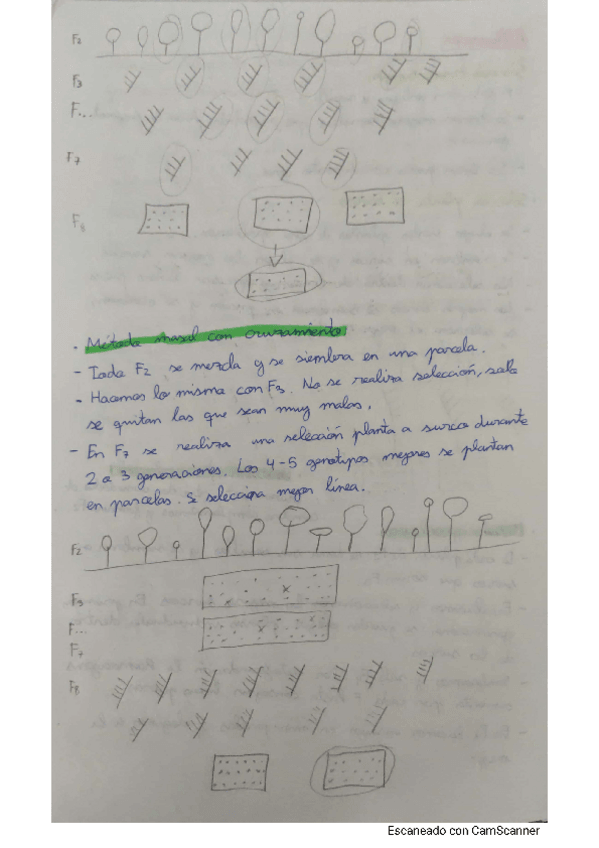 F2
F3
F...
F7
F8
. Método masal con cruzamiento
- Toda F2 se mezcla y se siembra en una parcela.
- Hacemos lo mismo con F3. No se realiza selección, solo
se quitan las que sean muy malas.
- En F7 se realiza una selección planta a surco durante
2 o 3 generaciones. Los 4-5 genotipos mejores se plantan
en parcelas. Se selecciona mejor línea.
F2
F3
F...
F7
F8
Escaneado con CamScanner